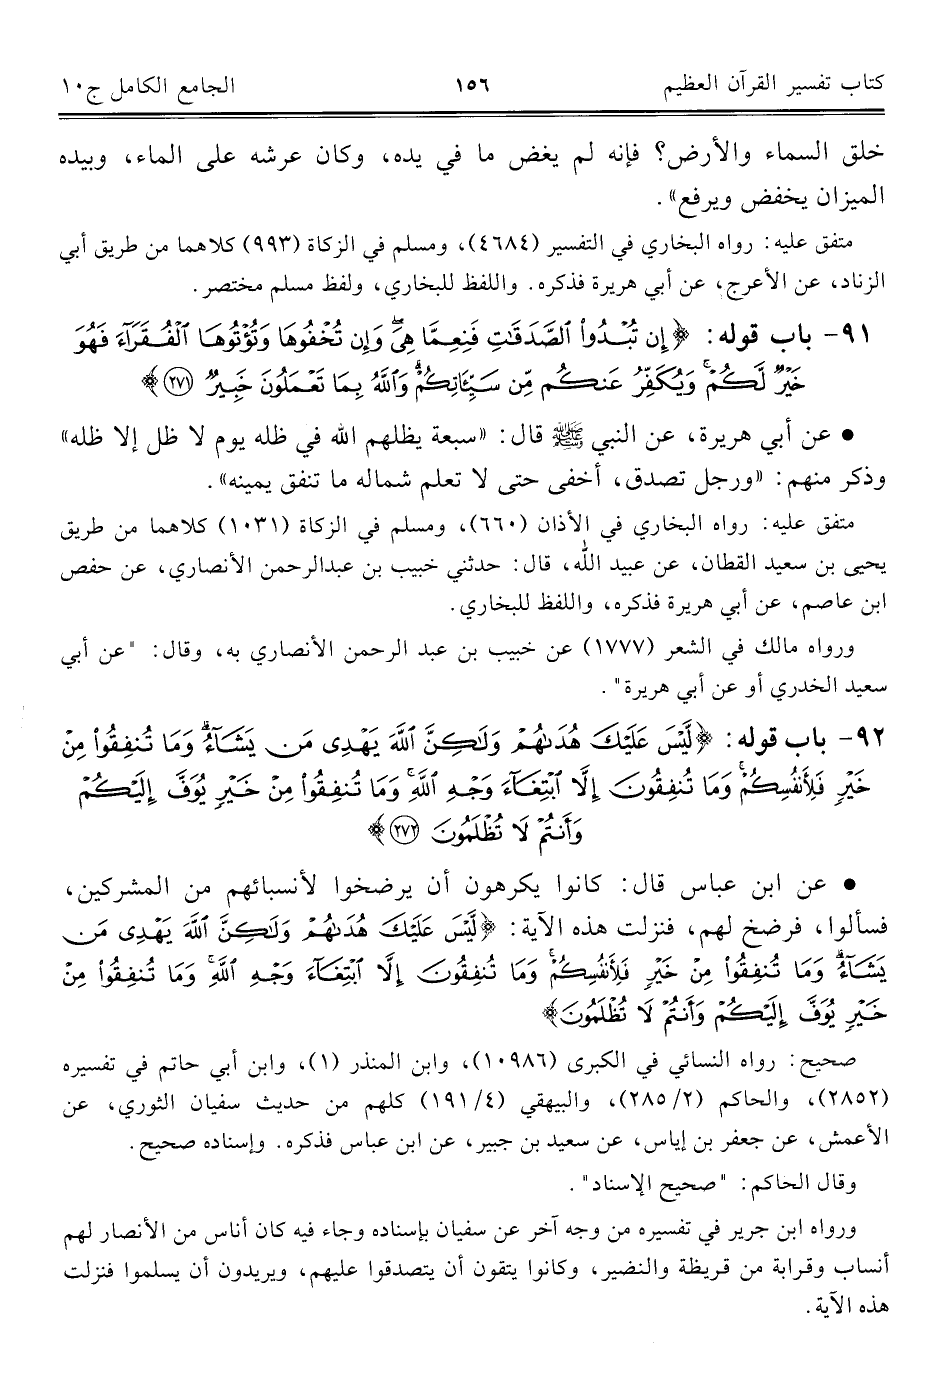 كتاب تفسير القرآن العظيم ١٥٦ الجامع الكامل ج١٠
خلق السماء والأرض؟ فإنه لم يغض ما في يده، وكان عرشه على الماء، وبيده
الميزان يخفض ويرفع».
متفق عليه: رواه البخاري في التفسير (٤٦٨٤)، ومسلم في الزكاة (٩٩٣) كلاهما من طريق أبي
الزناد، عن الأعرج، عن أبي هريرة فذكره. واللفظ للبخاري، ولفظ مسلم مختصر.
٩١- باب قوله: ﴿إِن تُبْدُوا۟ ٱلصَّدَقَٰتِ فَنِعِمَّا هِىَۖ وَإِن تُخْفُوهَا وَتُؤْتُوهَا ٱلْفُقَرَآءَ فَهُوَ
خَيْرٌ لَّكُمْۚ وَيُكَفِّرُ عَنكُم مِّن سَيِّـَٔاتِكُمْۗ وَٱللَّهُ بِمَا تَعْمَلُونَ خَبِيرٌ (٢٧١)﴾
• عن أبي هريرة، عن النبي ﷺ قال: «سبعة يظلهم الله في ظله يوم لا ظل إلا ظله»
وذكر منهم: «ورجل تصدق، أخفى حتى لا تعلم شماله ما تنفق يمينه».
متفق عليه: رواه البخاري في الأذان (٦٦٠)، ومسلم في الزكاة (١٠٣١) كلاهما من طريق
يحيى بن سعيد القطان، عن عبيد الله، قال: حدثني خبيب بن عبدالرحمن الأنصاري، عن حفص
ابن عاصم، عن أبي هريرة فذكره، واللفظ للبخاري.
ورواه مالك في الشعر (١٧٧٧) عن خبيب بن عبد الرحمن الأنصاري به، وقال: "عن أبي
سعيد الخدري أو عن أبي هريرة".
٩٢- باب قوله: ﴿لَّيْسَ عَلَيْكَ هُدَىٰهُمْ وَلَٰكِنَّ ٱللَّهَ يَهْدِى مَن يَشَآءُۗ وَمَا تُنفِقُوا۟ مِنْ
خَيْرٍ فَلِأَنفُسِكُمْۚ وَمَا تُنفِقُونَ إِلَّا ٱبْتِغَآءَ وَجْهِ ٱللَّهِۚ وَمَا تُنفِقُوا۟ مِنْ خَيْرٍ يُوَفَّ إِلَيْكُمْ
وَأَنتُمْ لَا تُظْلَمُونَ (٢٧٢)﴾
• عن ابن عباس قال: كانوا يكرهون أن يرضخوا لأنسبائهم من المشركين،
فسألوا، فرضخ لهم، فنزلت هذه الآية: ﴿لَّيْسَ عَلَيْكَ هُدَىٰهُمْ وَلَٰكِنَّ ٱللَّهَ يَهْدِى مَن
يَشَآءُۗ وَمَا تُنفِقُوا۟ مِنْ خَيْرٍ فَلِأَنفُسِكُمْۚ وَمَا تُنفِقُونَ إِلَّا ٱبْتِغَآءَ وَجْهِ ٱللَّهِۚ وَمَا تُنفِقُوا۟ مِنْ
خَيْرٍ يُوَفَّ إِلَيْكُمْ وَأَنتُمْ لَا تُظْلَمُونَ﴾
صحيح: رواه النسائي في الكبرى (١٠٩٨٦)، وابن المنذر (١)، وابن أبي حاتم في تفسيره
(٢٨٥٢)، والحاكم (٢/ ٢٨٥)، والبيهقي (٤/ ١٩١) كلهم من حديث سفيان الثوري، عن
الأعمش، عن جعفر بن إياس، عن سعيد بن جبير، عن ابن عباس فذكره. وإسناده صحيح.
وقال الحاكم: "صحيح الإسناد".
ورواه ابن جرير في تفسيره من وجه آخر عن سفيان بإسناده وجاء فيه كان أناس من الأنصار لهم
أنساب وقرابة من قريظة والنضير، وكانوا يتقون أن يتصدقوا عليهم، ويريدون أن يسلموا فنزلت
هذه الآية.